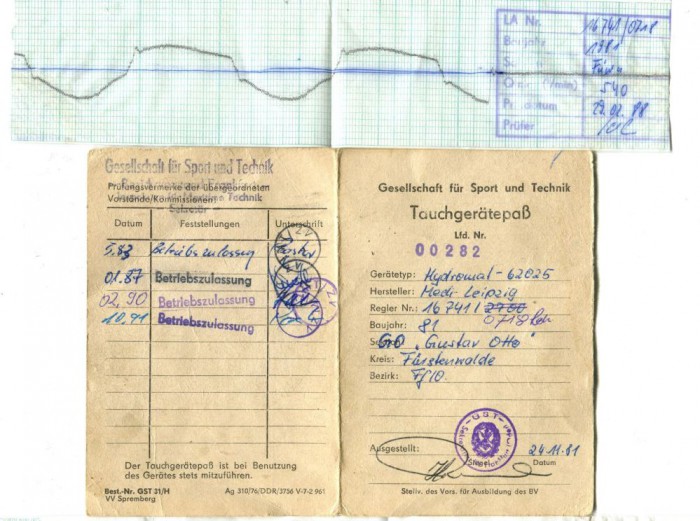 LA Nr. 16741/0718
Baujahr 1981
Q 540
datum 22.02.88
Prüfer
Gesellschaft für Sport und Technik
Prüfungsvermerke der übergeordneten
Vorstände/Kommissionen:
Technik
Sekretär
Datum Feststellungen Unterschrift
5.83 Betriebszulassung
01.87 Betriebszulassung
02.90 Betriebszulassung
10.91 Betriebszulassung
Der Tauchgerätepaß ist bei Benutzung
des Gerätes stets mitzuführen.
Best.-Nr. GST 31/H Ag 310/76/DDR/3756 V-7-2 961
VV Spremberg
Gesellschaft für Sport und Technik
Tauchgerätepaß
Lfd. Nr.
00282
Gerätetyp: Hydromat-62025
Hersteller: Medi Leipzig
Regler Nr.: 16741/2700
0718
Baujahr: 81
GO „Gustav Otto"
Kreis: Fürstenwalde
Bezirk: Ff/O.
GST
Ausgestellt: 24.11.81
Datum
Stellv. des Vors. für Ausbildung des BV